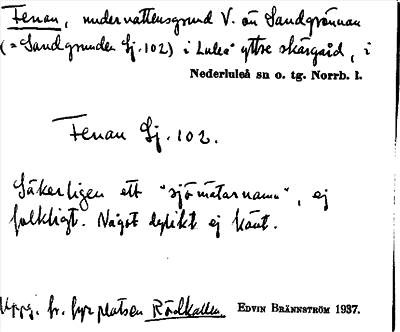 Fenan, undervattensgrund V. om Sandgrönnan
(= Sandgrunden Sj. 102) i Luleå yttre skärgård, i
Nederluleå sn o. tg. Norrb. l.
Fenan Sj. 102.
Säkerligen ett "sjömätarnamn", ej
folkligt. Något dylikt ej känt.
Uppg. fr. fyrplatsen Rödkallen. EDVIN BRÄNNSTRÖM 1937.